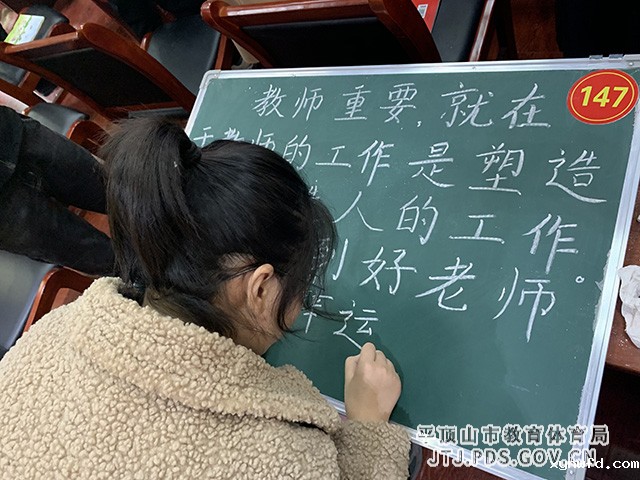 教师重要,就在
于教师的工作是塑造
人的工作
好老师。
运
147
平顶山市教育体育局
JTJ.PDS.GOV.CN